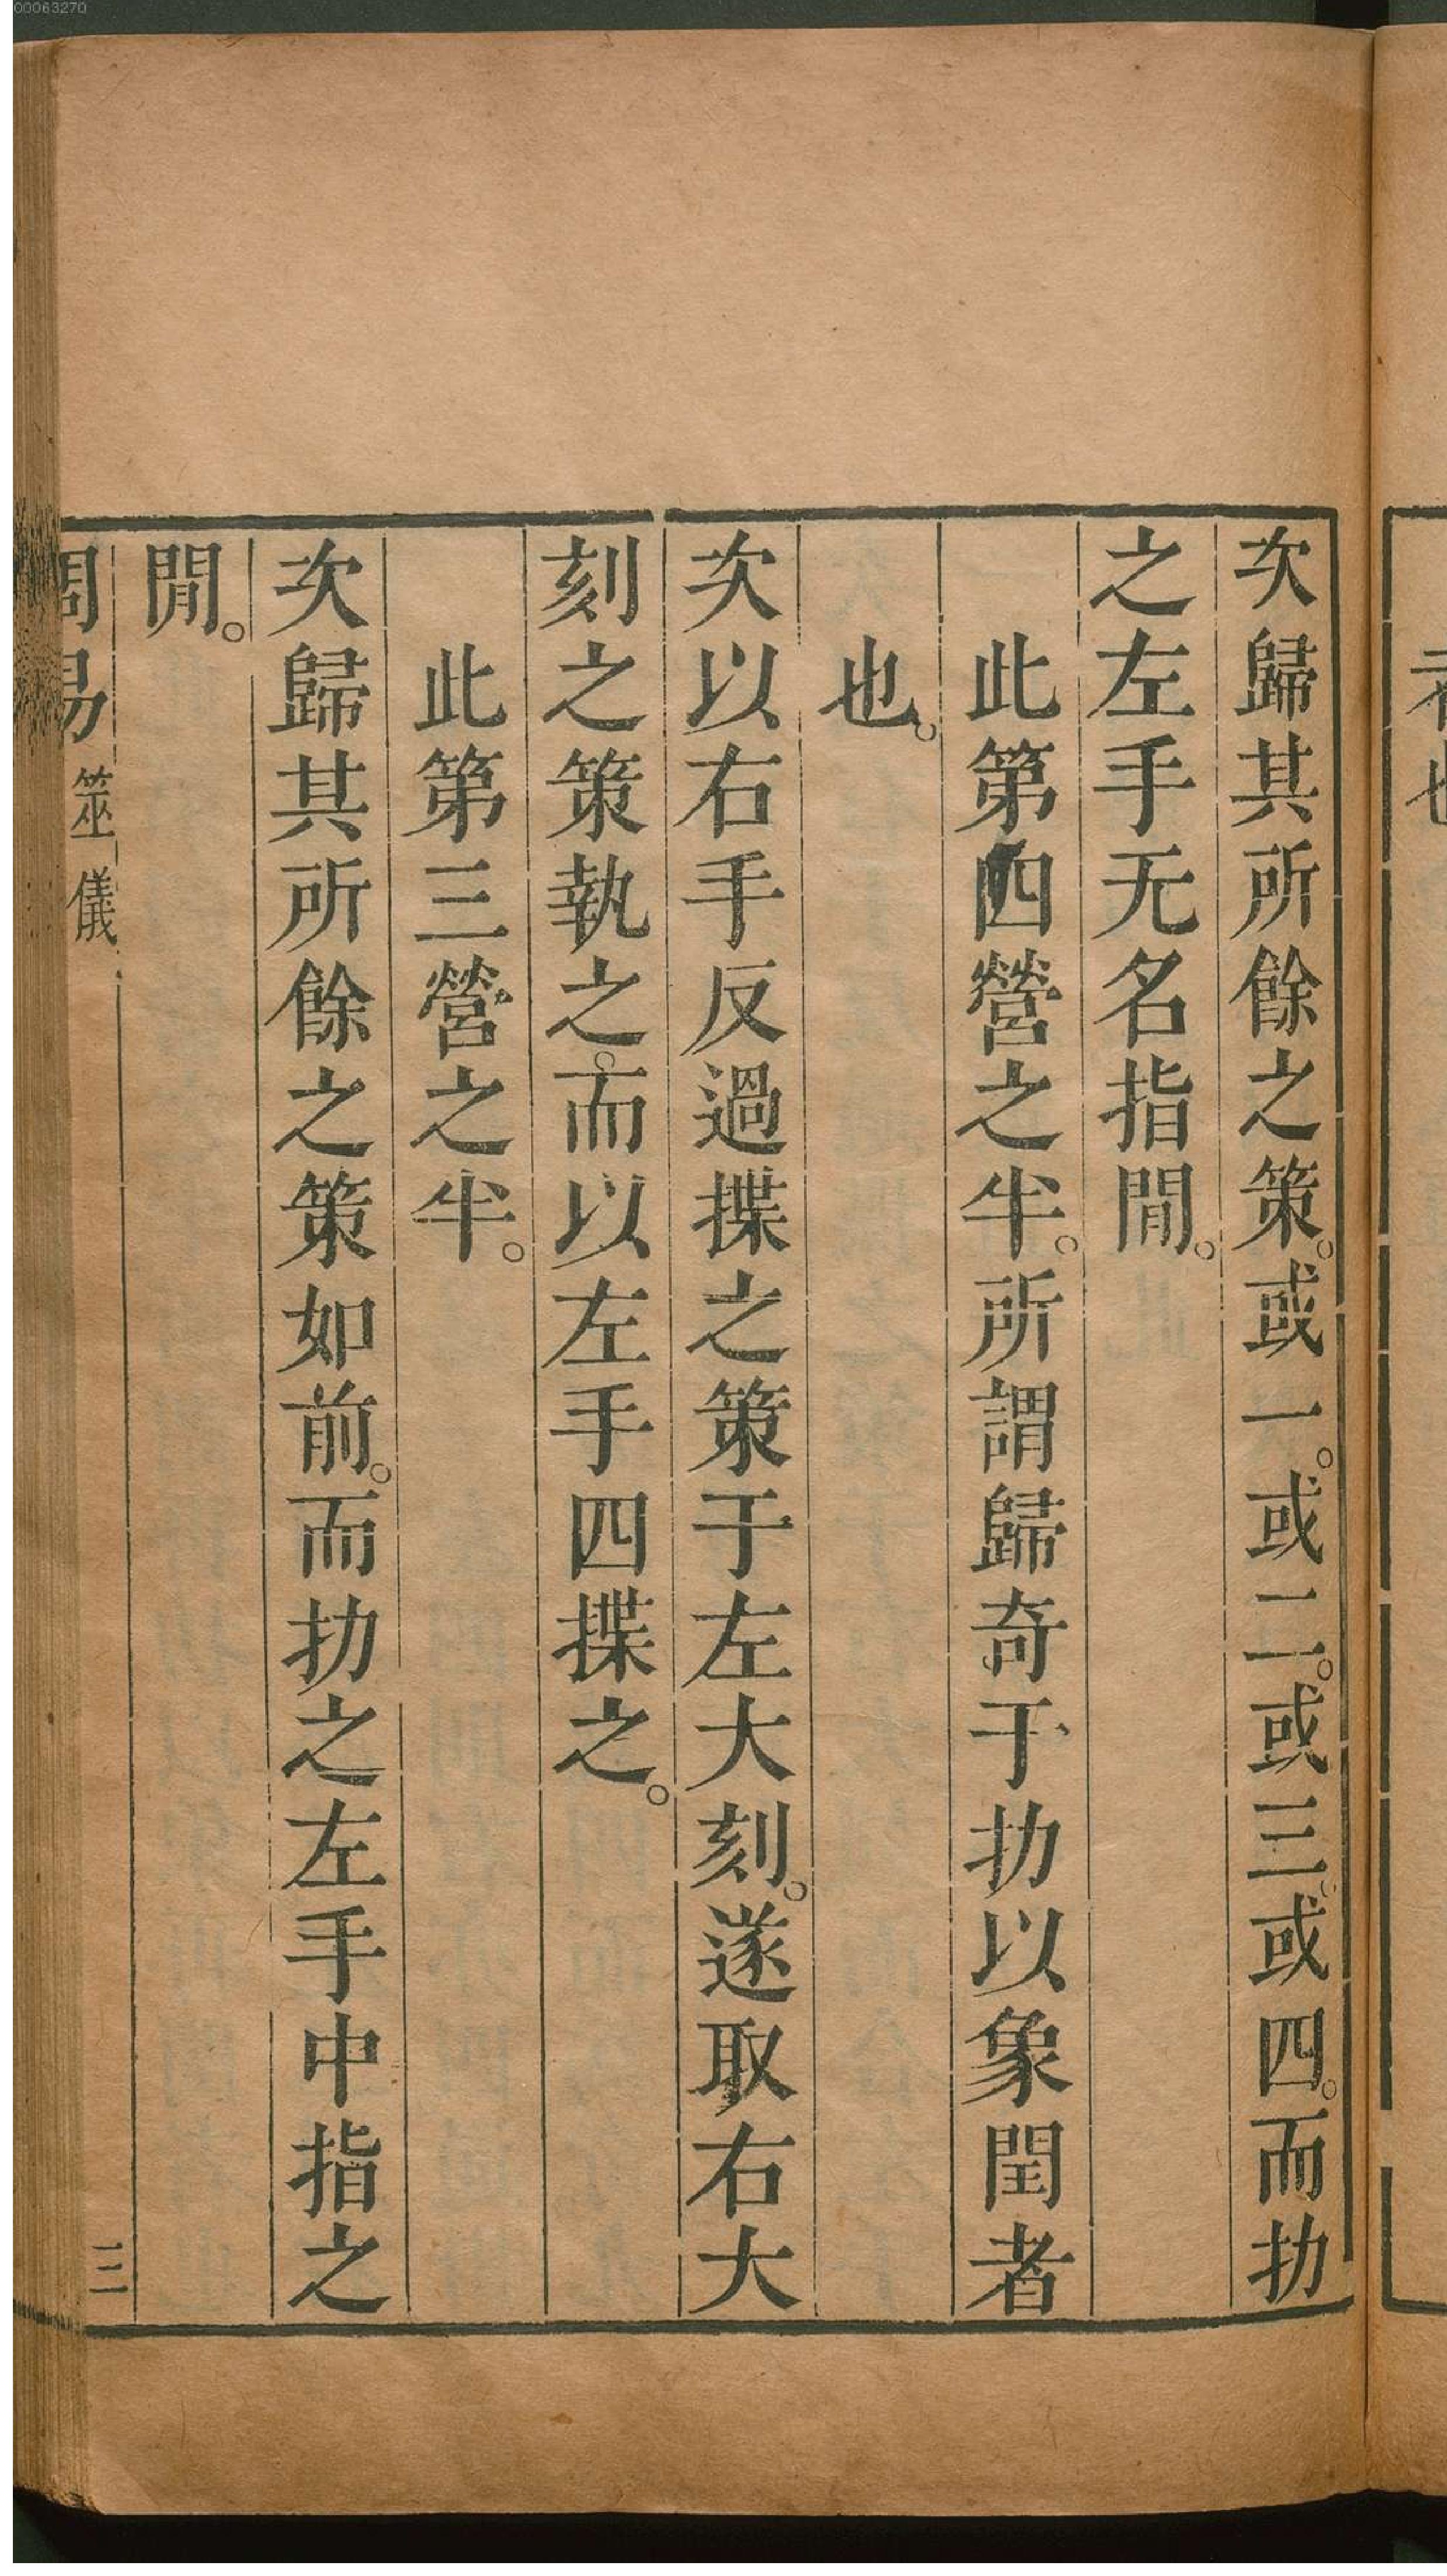 00063270
次歸其所餘之策。或一。或二。或三。或四。而扐
之左手无名指閒。
此第四營之半。所謂歸奇于扐以象閏者
也。
次以右手反過揲之策于左大刻。遂取右大
刻之策執之。而以左手四揲之。
此第三營之半。
次歸其所餘之策如前。而扐之左手中指之
閒。
周易 筮儀 三